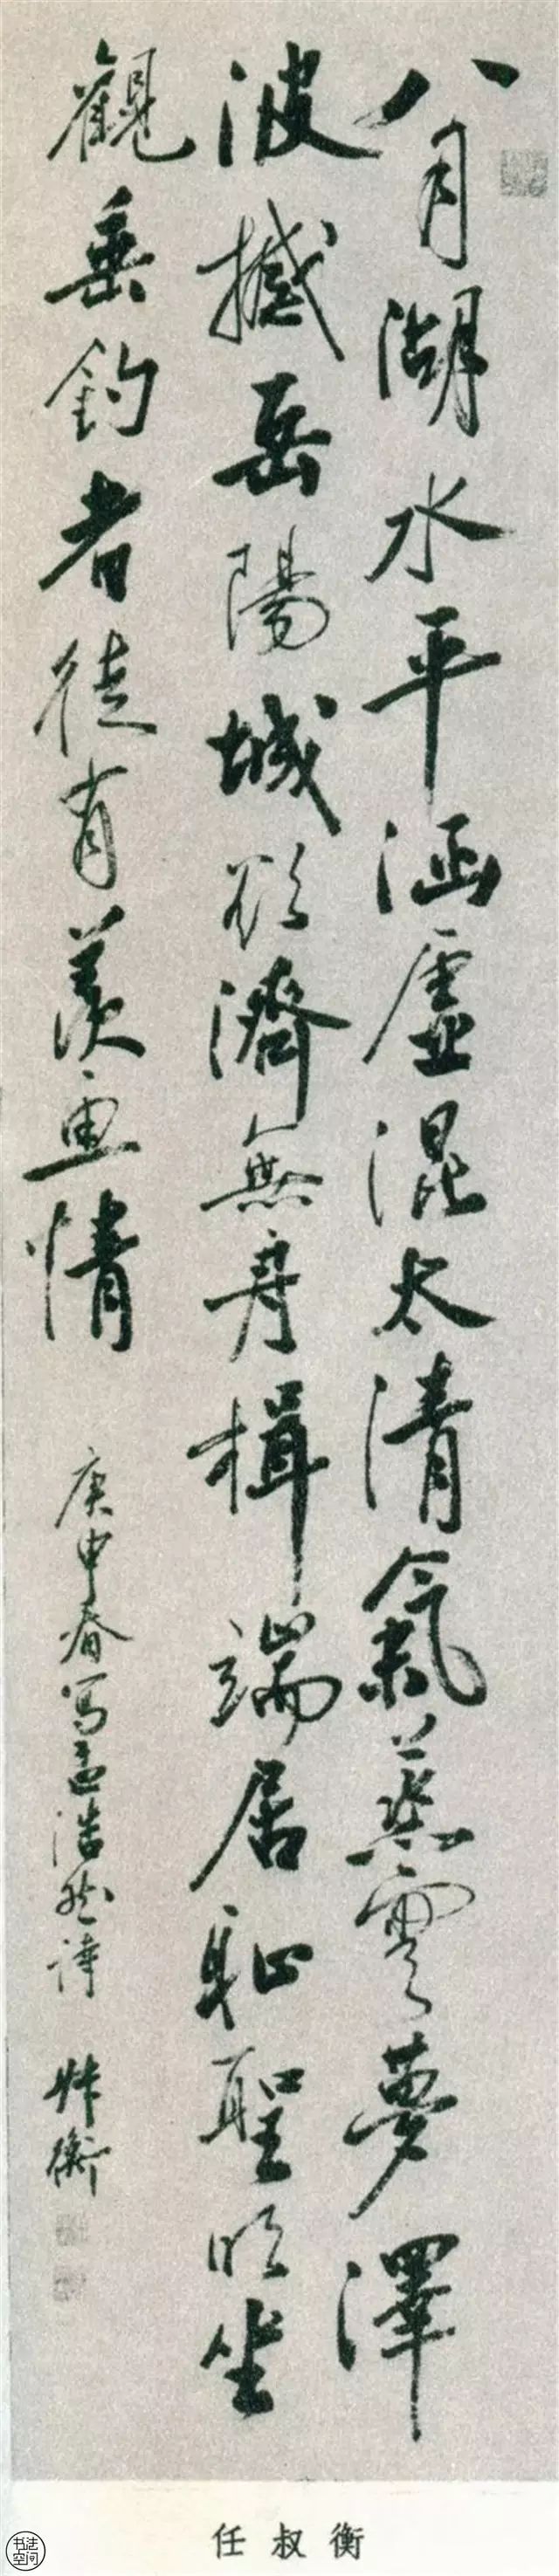 八月湖水平涵虛混太清氣蒸雲夢澤
波撼岳陽城欲濟無舟楫端居恥聖明坐
觀垂釣者徒有羨魚情
庚申春写孟浩然詩 叔衡
任叔衡
书法空间